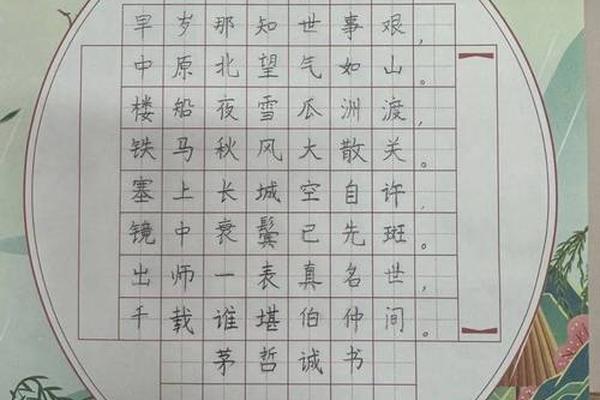 早岁那知世事艰，
中原北望气如山。
楼船夜雪瓜洲渡，
铁马秋风大散关。
塞上长城空自许，
镜中衰鬓已先斑。
出师一表真名世，
千载谁堪伯仲间。
茅哲诚书